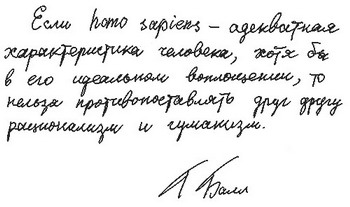 Если homo sapiens – адекватная
характеристика человека, хотя бы
в его идеальном воплощении, то
нельзя противопоставлять друг другу
рационализм и гуманизм.
Г Балл